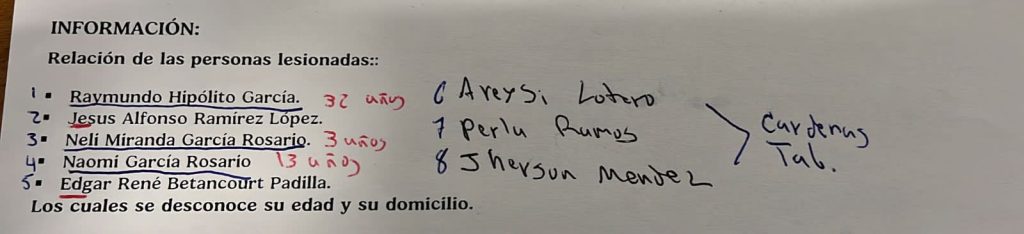 INFORMACIÓN:
Relación de las personas lesionadas::
1 ▪ Raymundo Hipólito García. 32 años
2 ▪ Jesus Alfonso Ramírez López.
3 ▪ Neli Miranda García Rosario. 3 años
4 ▪ Naomi García Rosario 13 años
5 ▪ Edgar René Betancourt Padilla.
Los cuales se desconoce su edad y su domicilio.
6 Areysi Lotero
7 Perla Ramos
8 Jherson Mendez
Cardenas
Tab.